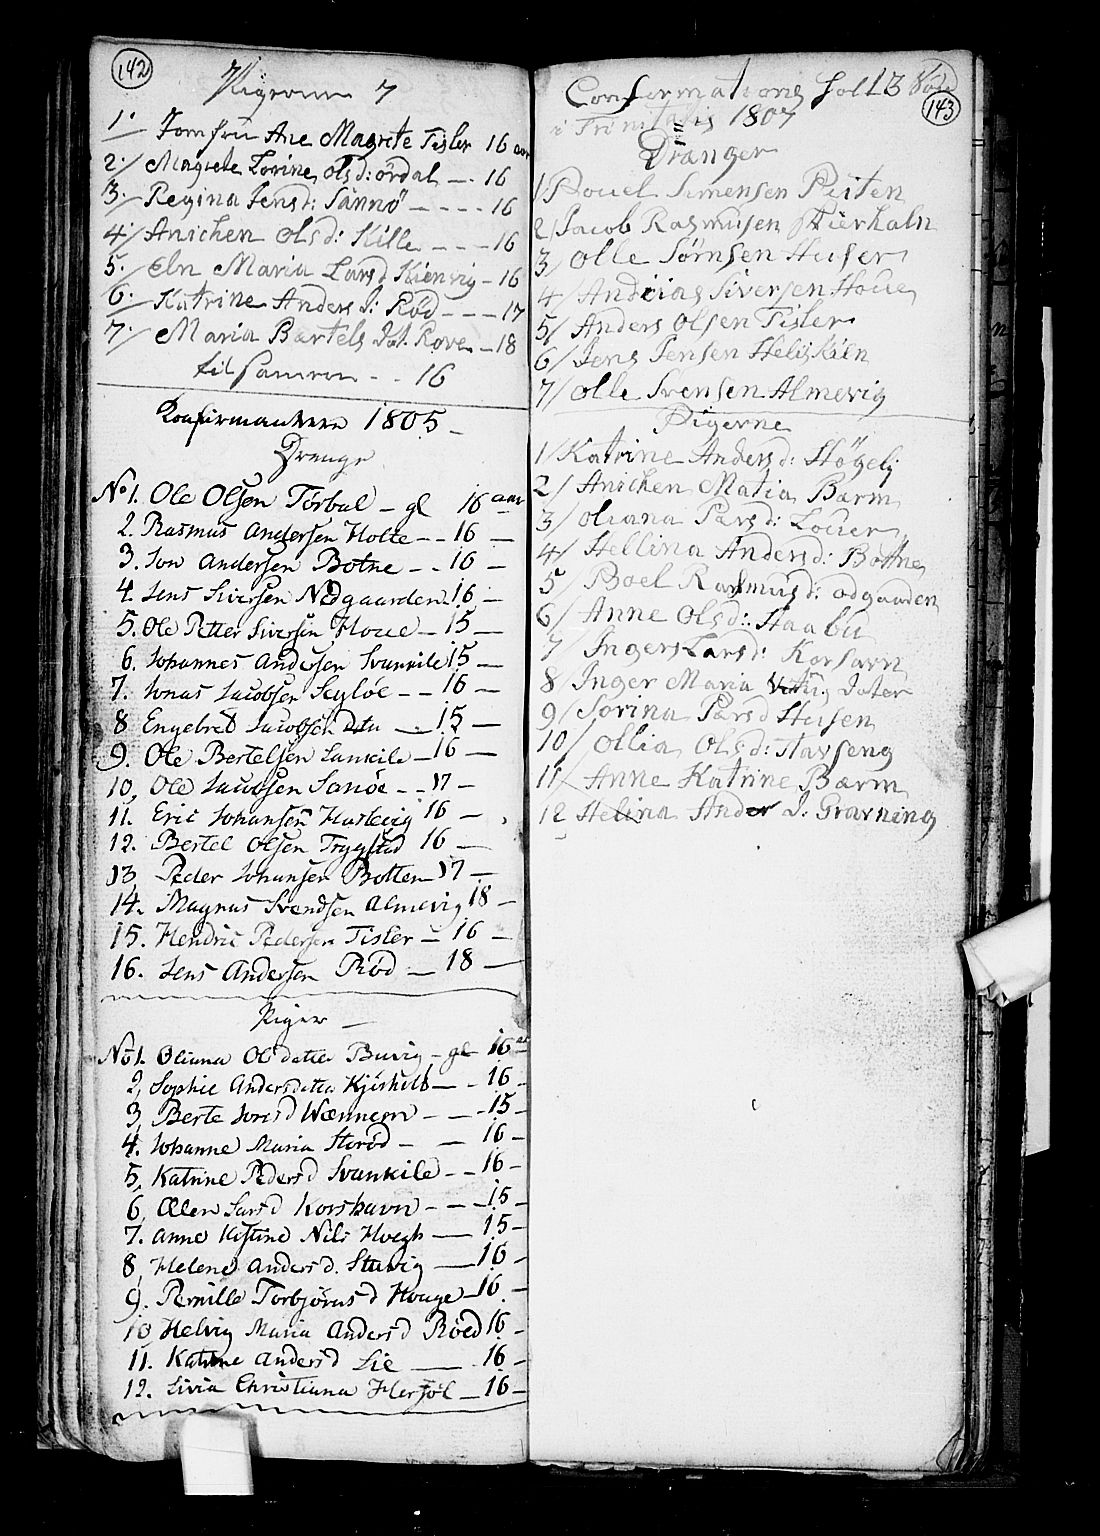 142
Pigerne 7
1. Jomfru Ane Magrete Tisler 16 aar
2. Magrete Lorine olsd: ordal - 16
3. Regina Jensd: Sannø - - - - 16
4 Anichen olsd: Kille - - - 16
5. Eln Maria Larsd Kienvig - 16
6. Katrine Anders d: Rød - - - 17
7. Maria Bartels dat. Rove - 18
til Samen - - 16
Konfirmanterne 1805 -
Drenge
No 1. Ole Olsen Torbal - gl 16 aar
2. Rasmus Andersen Holte - - 16 -
3. Jon Andersen Botne - - 16 -
4. Jens Siversen Nedgaarden 16 -
5. Ole Petter Siversen Houe - 15 -
6. Johannes Andersen Svankile 15 -
7. Jonas Jacobsen Seyløe - - 16 -
8 Engelred Jacobsen - 15 -
9. Ole Bertelsen Svankile - 16 -
10, Ole Jacobsen Sanøe - - 17 -
11. Eric Johansen Haslevig 16 -
12. Bertel Olsen Trygstad 16 -
13, Peder Johansen Botten 17 -
14. Magnus Svendsen Almevig 18 -
15. Hendric Pedersen Tisler - 16 -
16. Jens Andersen Rød - 18 -
Piger -
No 1. Oliana Ols datter Buvig - gl 16 aar
2, Sophie Andersdatter Kjirholt - 16 -
3, Berte Joresd Wænnern - - 15 -
4. Johanne Maria Storød - - 16 -
5, Katrine Pedersd Svankile - - 16 -
6, Ælen Larsd Korshavn - - - 15 -
7. Anne Kistine Nils Hoegh - 15 -
8, Helene Anders d. Stuvig - 16 -
9. Pernille Torbjørns d Houge - 16 -
10, Helvig Maria Andersd Röed 16 -
11. Katrine Andersd Lie - 16 -
12. Livia Christiana Herføl - 16 -
143
Confermations holt 13 Søn
i Trinitatis 1807
Dränger
1 Pouel Simensen Peiten
2/ Jacob Rasmusen Kierhaln
3/ Olle Sørnsen Huser
4/ Andrias Siversen Houe
5/ Anders Olsen Tisler
6/ Jens Jensen Heliskiln
7/ Olle Svensen Almevig
Pigerne
1/ Katrine Andersd: Høgelj
2/ Anichen Matia Bærm
3/ Oliana Parsd: Louer
4/ Hellina Andersd: Bottne
5 Boel Rasmusd: odgaarden
6/ Anne Olsd: Staabu
7/ Ingers Larsd: Korsavn
8/ Inger Maria Vettig Dater
9/ Sorina Parsd Husen
10/ Ollia Olsd: Stavseng
11 Anne Katrine Bærm
12 Helina Ander d: Gravning